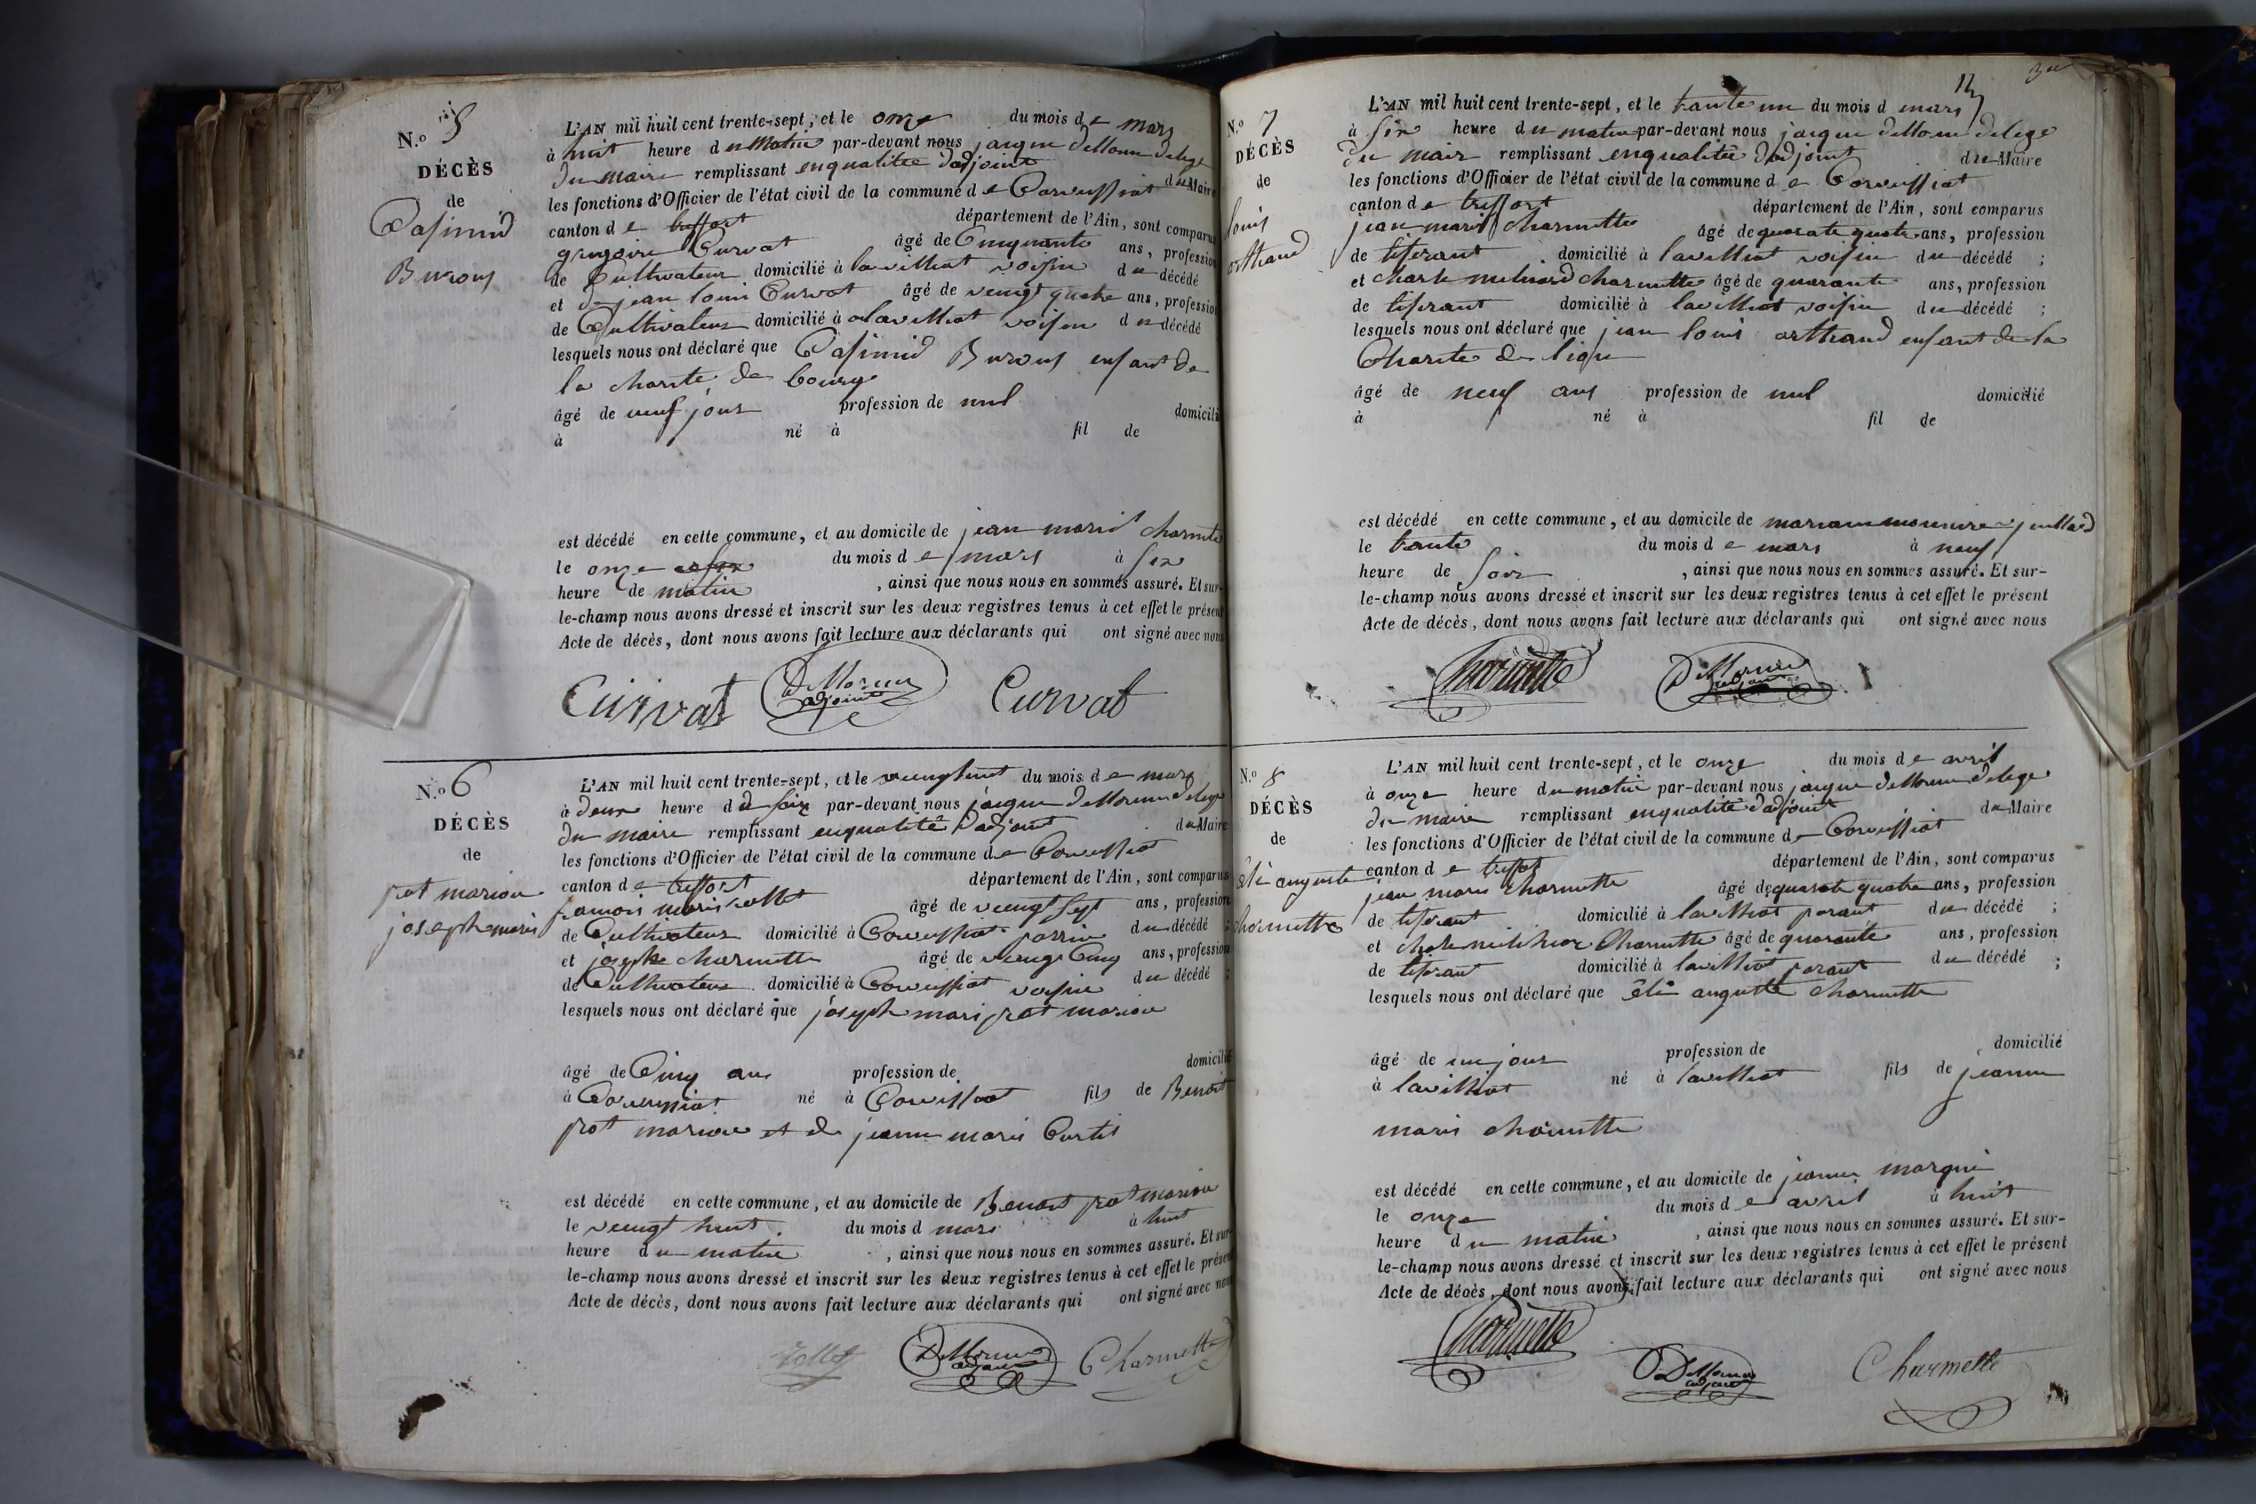 N.o 5
DÉCÈS
de
Casimid
Burous
L'AN mil huit cent trente-sept, et le onze du mois de mars
à huit heure du matin par-devant nous jaque deMorne delege
du maire remplissant enqualitée d'adjoint du Maire
les fonctions d'Officier de l'état civil de la commune de Corveissiat
canton de treffort département de l'Ain, sont comparus
gregoire Curvat âgé de Cinquante ans, profession
de Cultivateur domicilié à lavilliat voisin du décédé
et de jean louis Curvat âgé de veingt quatre ans, profession
de Cultivateur domicilié à alavilliat voisin du décédé
lesquels nous ont déclaré que Casimid Burous enfant de
la charite de bourg
âgé de neuf jour profession de nul domicilié
à né à fil de
est décédé en cette commune, et au domicile de jean marie charmette
le onze du mois de mars à six
heure de matin , ainsi que nous nous en sommes assuré. Et sur-
le-champ nous avons dressé et inscrit sur les deux registres tenus à cet effet le présent
Acte de décès, dont nous avons fait lecture aux déclarants qui ont signé avec nous
Curvat DeMorne adjoint Curvat
N.o 6
DÉCÈS
de
prat marion
joseph marie
L'AN mil huit cent trente-sept, et le veingt huit du mois de mars
à deux heure du soir par-devant nous jaque deMorne delege
du maire remplissant enqualité d'adjoint du Maire
les fonctions d'Officier de l'état civil de la commune de Corveissiat
canton de treffort département de l'Ain, sont comparus
francois marie rollet âgé de veingt sept ans, profession
de Cultivateur domicilié à Corveissiat parrin du décédé ;
et josephe charmette âgé de veingt Cinq ans, profession
de Cultivateur domicilié à Corveissiat voisin du décédé ;
lesquels nous ont déclaré que joseph mari prat marion
âgé de Cinq ans profession de domicilié
à Corveissiat né à Corveissiat fils de Benoit
prat marion et de jeanne marie Curtil
est décédé en cette commune, et au domicile de Benoit prat marion
le veingt huit du mois d mars à huit
heure du matin , ainsi que nous nous en sommes assuré. Et sur-
le-champ nous avons dressé et inscrit sur les deux registres tenus à cet effet le présent
Acte de décès, dont nous avons fait lecture aux déclarants qui ont signé avec nous
rollet DeMorne adjoint Charmette
N.o 7
DÉCÈS
de
louis
arthaud
L'AN mil huit cent trente-sept, et le trante un du mois d mars
à six heure du matin par-devant nous jaque deMorne delege
du mair remplissant enqualitée d'adjoint du Maire
les fonctions d'Officier de l'état civil de la commune de Corveissiat
canton de treffort département de l'Ain, sont comparus
jean marie charmette âgé de quarate quatre ans, profession
de tiserant domicilié à lavilliat voisin du décédé ;
et charle melniord charmette âgé de quarante ans, profession
de tiserant domicilié à lavilliat voisin du décédé ;
lesquels nous ont déclaré que jean louis arthaud enfant de la
Charite de lion
âgé de neuf ans profession de nul domicilié
à né à fil de
est décédé en cette commune, et au domicile de juillard
le trante du mois de mars à neuf
heure de soir , ainsi que nous nous en sommes assuré. Et sur-
le-champ nous avons dressé et inscrit sur les deux registres tenus à cet effet le présent
Acte de décès, dont nous avons fait lecture aux déclarants qui ont signé avec nous
Charmette DeMorne adjoint
N.o 8
DÉCÈS
de
éli auguste
charmette
L'AN mil huit cent trente-sept, et le onze du mois de avril
à onze heure du matin par-devant nous jaque deMorne delege
du maire remplissant enqualité d'adjoint du Maire
les fonctions d'Officier de l'état civil de la commune de Corveissiat
canton de treffort département de l'Ain, sont comparus
jean marie charmette âgé de quarate quatre ans, profession
de tiserant domicilié à lavilliat parant du décédé ;
et charle melchior Charmette âgé de quarante ans, profession
de tiserant domicilié à lavilliat parant du décédé ;
lesquels nous ont déclaré que éli auguste charmette
âgé de un jour profession de domicilié
à lavilliat né à lavilliat fils de jeanne
marie charmette
est décédé en cette commune, et au domicile de jeanne marquie
le onze du mois de avril à huit
heure du matin , ainsi que nous nous en sommes assuré. Et sur-
le-champ nous avons dressé et inscrit sur les deux registres tenus à cet effet le présent
Acte de décès, dont nous avons fait lecture aux déclarants qui ont signé avec nous
Charmette DeMorne adjoint Charmette